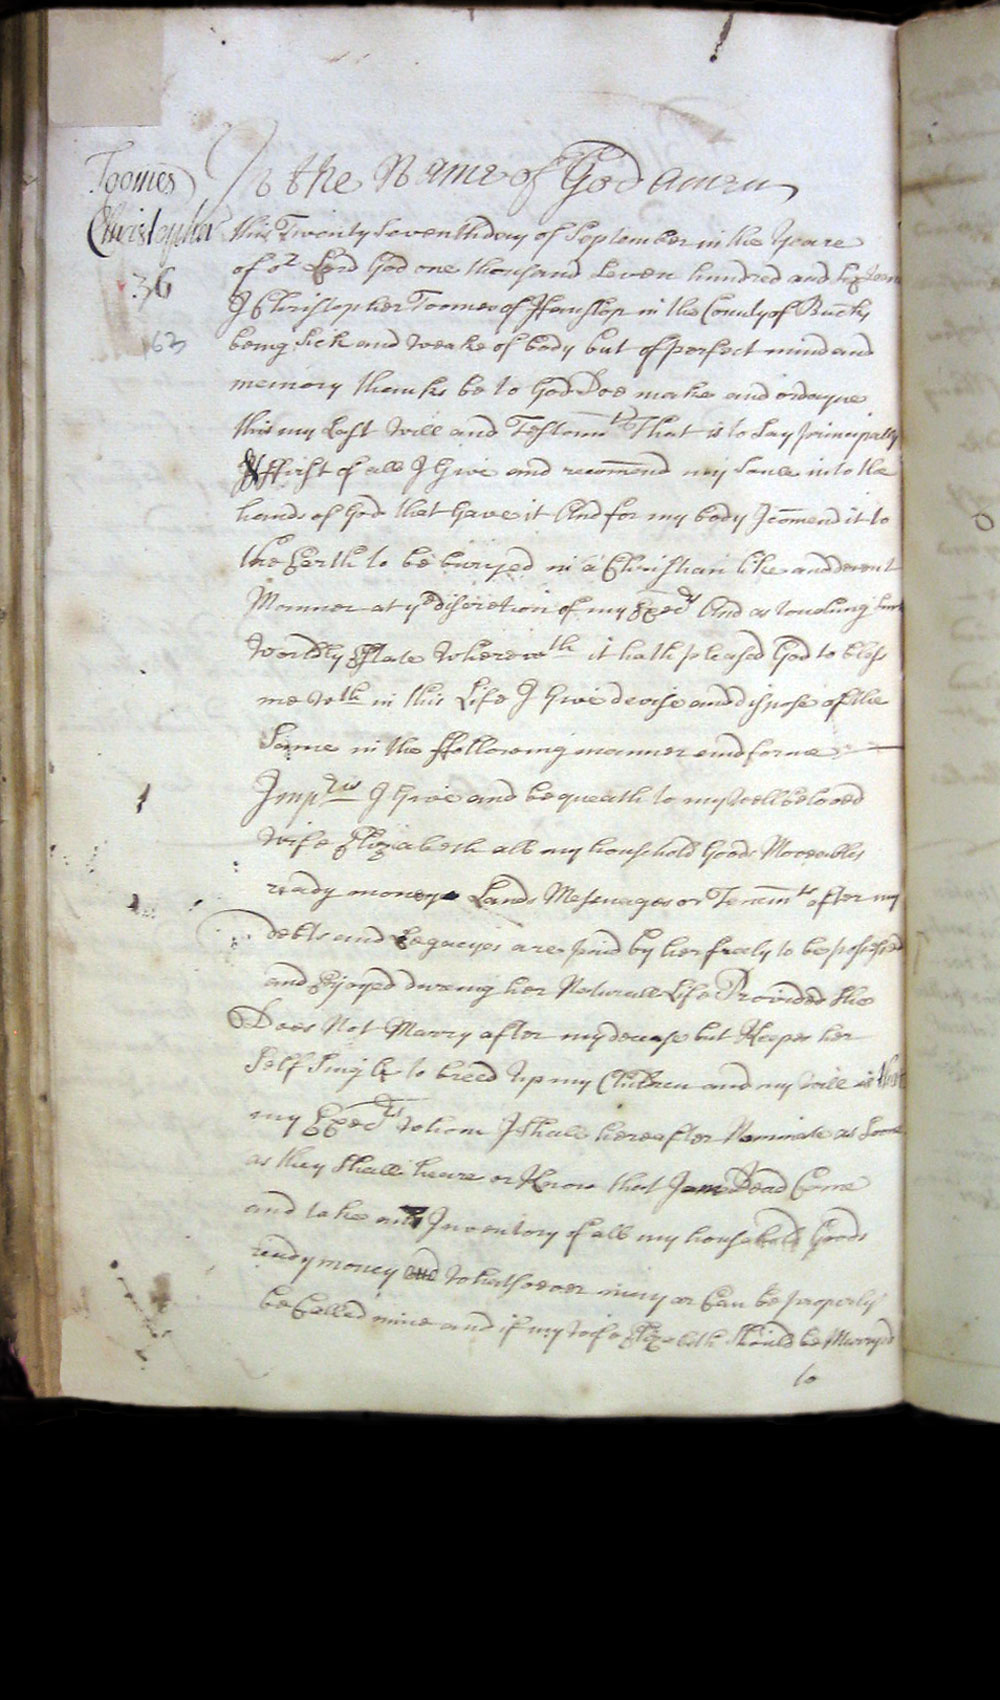 Toomes
Christopher
36
63
In the Name of God Amen
this Twenty Seventh day of September in the Yeare
of o:r Lord God one thousand Seven hundred and Sixteen
I Christopher Toomes of Hanslop in the County of Bucks
being Sick and weake of body but of perfect mind and
memory thanks be to God Doe make and ordayne
this my Last Will and Testamt That is to Say principally
ffirst of all I Give and recomend my Soule into the
hands of God that Gave it And for my body I comend it to
the Earth to be buryed in a Christian like and decent
Manner at ye discretion of my Exec:rs And as touching
Worldly Estate Wherewth it hath pleased God to bless
me wth in this Life I Give devise and dispose of the
Same in the ffollowing manner and forme
Imp:ris I Give and bequeath to my well beloved
Wife Elizabeth all my household Goods Moveables
ready money Lands Messuages or Tenemts after my
debts and Legacyes are paid by her freely to be possessed
and Enjoyed dureing her Naturall Life Provided She
Does Not Marry after my decease but Keepes her
Self Single to breed Up my Children and my will is that
my Exec:rs whom I Shall hereafter Nominate as Soone
as they Shall heare or Know that I am Dead Come
and take an Inventory of all my household Goods
ready money and whatsoever may or Can be properly
be Called mine and if my wife Elizabeth Should be Marryed
to